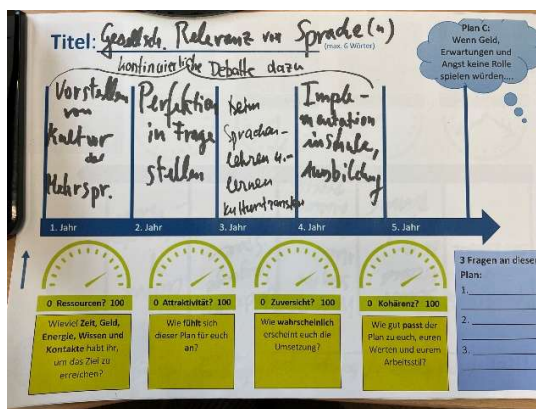 Titel: Gesellsch. Relevanz von Sprache(n)
(max. 6 Wörter)
kontinuierliche Debatte dazu
Plan C:
Wenn Geld,
Erwartungen und
Angst keine Rolle
spielen würden....
Vorstellen
von
Kultur
der
Mehrspr.
Perfektion
in Frage
stellen
beim
Sprachen-
lehren u.-
lernen
Imple-
mentation
in Schule,
Ausbildung
1. Jahr
2. Jahr
3. Jahr
4. Jahr
5. Jahr
0 Ressourcen? 100
0 Attraktivität? 100
0 Zuversicht? 100
0 Kohärenz? 100
Wieviel Zeit, Geld,
Energie, Wissen und
Kontakte habt ihr,
um das Ziel zu
erreichen?
Wie fühlt sich
dieser Plan für euch
an?
Wie wahrscheinlich
erscheint euch die
Umsetzung?
Wie gut passt der
Plan zu euch, euren
Werten und eurem
Arbeitsstil?
3 Fragen an diesen
Plan:
1.
2.
3.